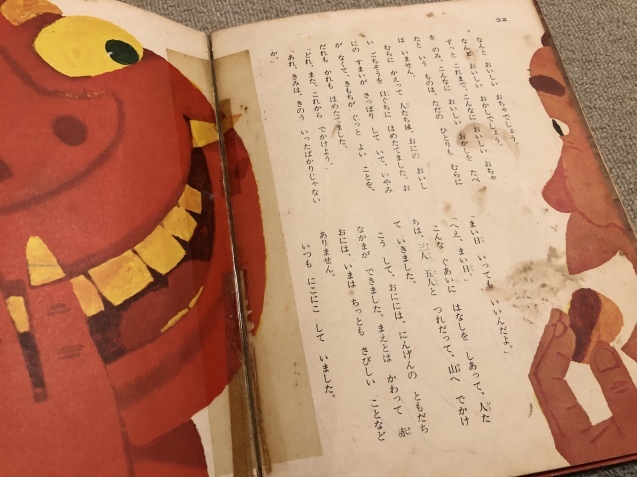 32
なんと おいしい おちゃでしょう。
なんと おいしい おかしでしょう。
ずっと これまで、こんなに おいしい おちゃ
を のみ、こんなに おいしい おかしを たべ
たと いう ものは、ただの ひとりも むらに
は いません。
むらに かえって 人たちは、おにの おいし
い ごちそうを 口ぐちに ほめたてました。お
にの すまいが さっぱり して いて、いやみ
が なくて、きもちが ぐっと よい ことを、
だれも かれも ほめたてました。
「どれ、また、これから でかけよう。」
「あれ、きみは、きのう いったばかりじゃない
か。」
「まい日 いっても いいんだよ。」
「へえ、まい日。」
こんな ぐあいに はなしを しあって、人た
ちは、三人 五人と つれだって、山へ でかけ
て いきました。
こう して、おにには、にんげんの ともだち
なかまが できました。まえとは かわって 赤
おには、いまは ちっとも さびしい ことなど
ありません。
いつも にこにこ して いました。